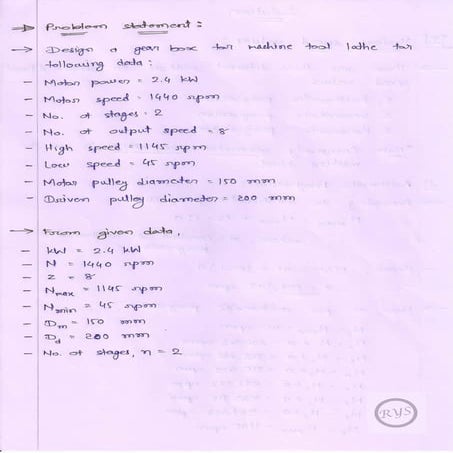 → Problem statement :
→ Design a gear box for machine tool lathe for
following data :
- Motor power = 2.4 kW
- Motor speed = 1440 rpm
- No. of stages = 2
- No. of output speed = 8
- High speed = 1145 rpm
- Low speed = 45 rpm
- Motor pulley diameter = 150 mm
- Driven pulley diameter = 200 mm
→ From given data,
- kW = 2.4 kW
- N = 1440 rpm
- Z = 8
- Nmax = 1145 rpm
- Nmin = 45 rpm
- Dm = 150 mm
- Dd = 200 mm
- No. of stages, n = 2
RYS